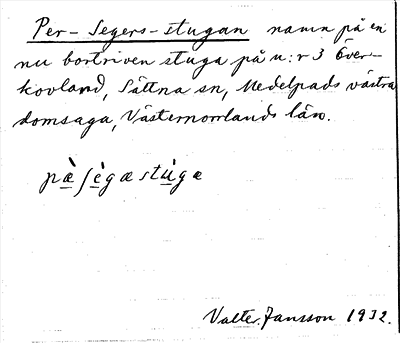 Per-Segers-stugan namn på en
nu bortriven stuga på n:r 3 Över-
kovland, Sättna sn, Medelpads västra
domsaga, Västernorrlands län.
pæ̀ʃègæstùgæ
Valter Jansson 1932.